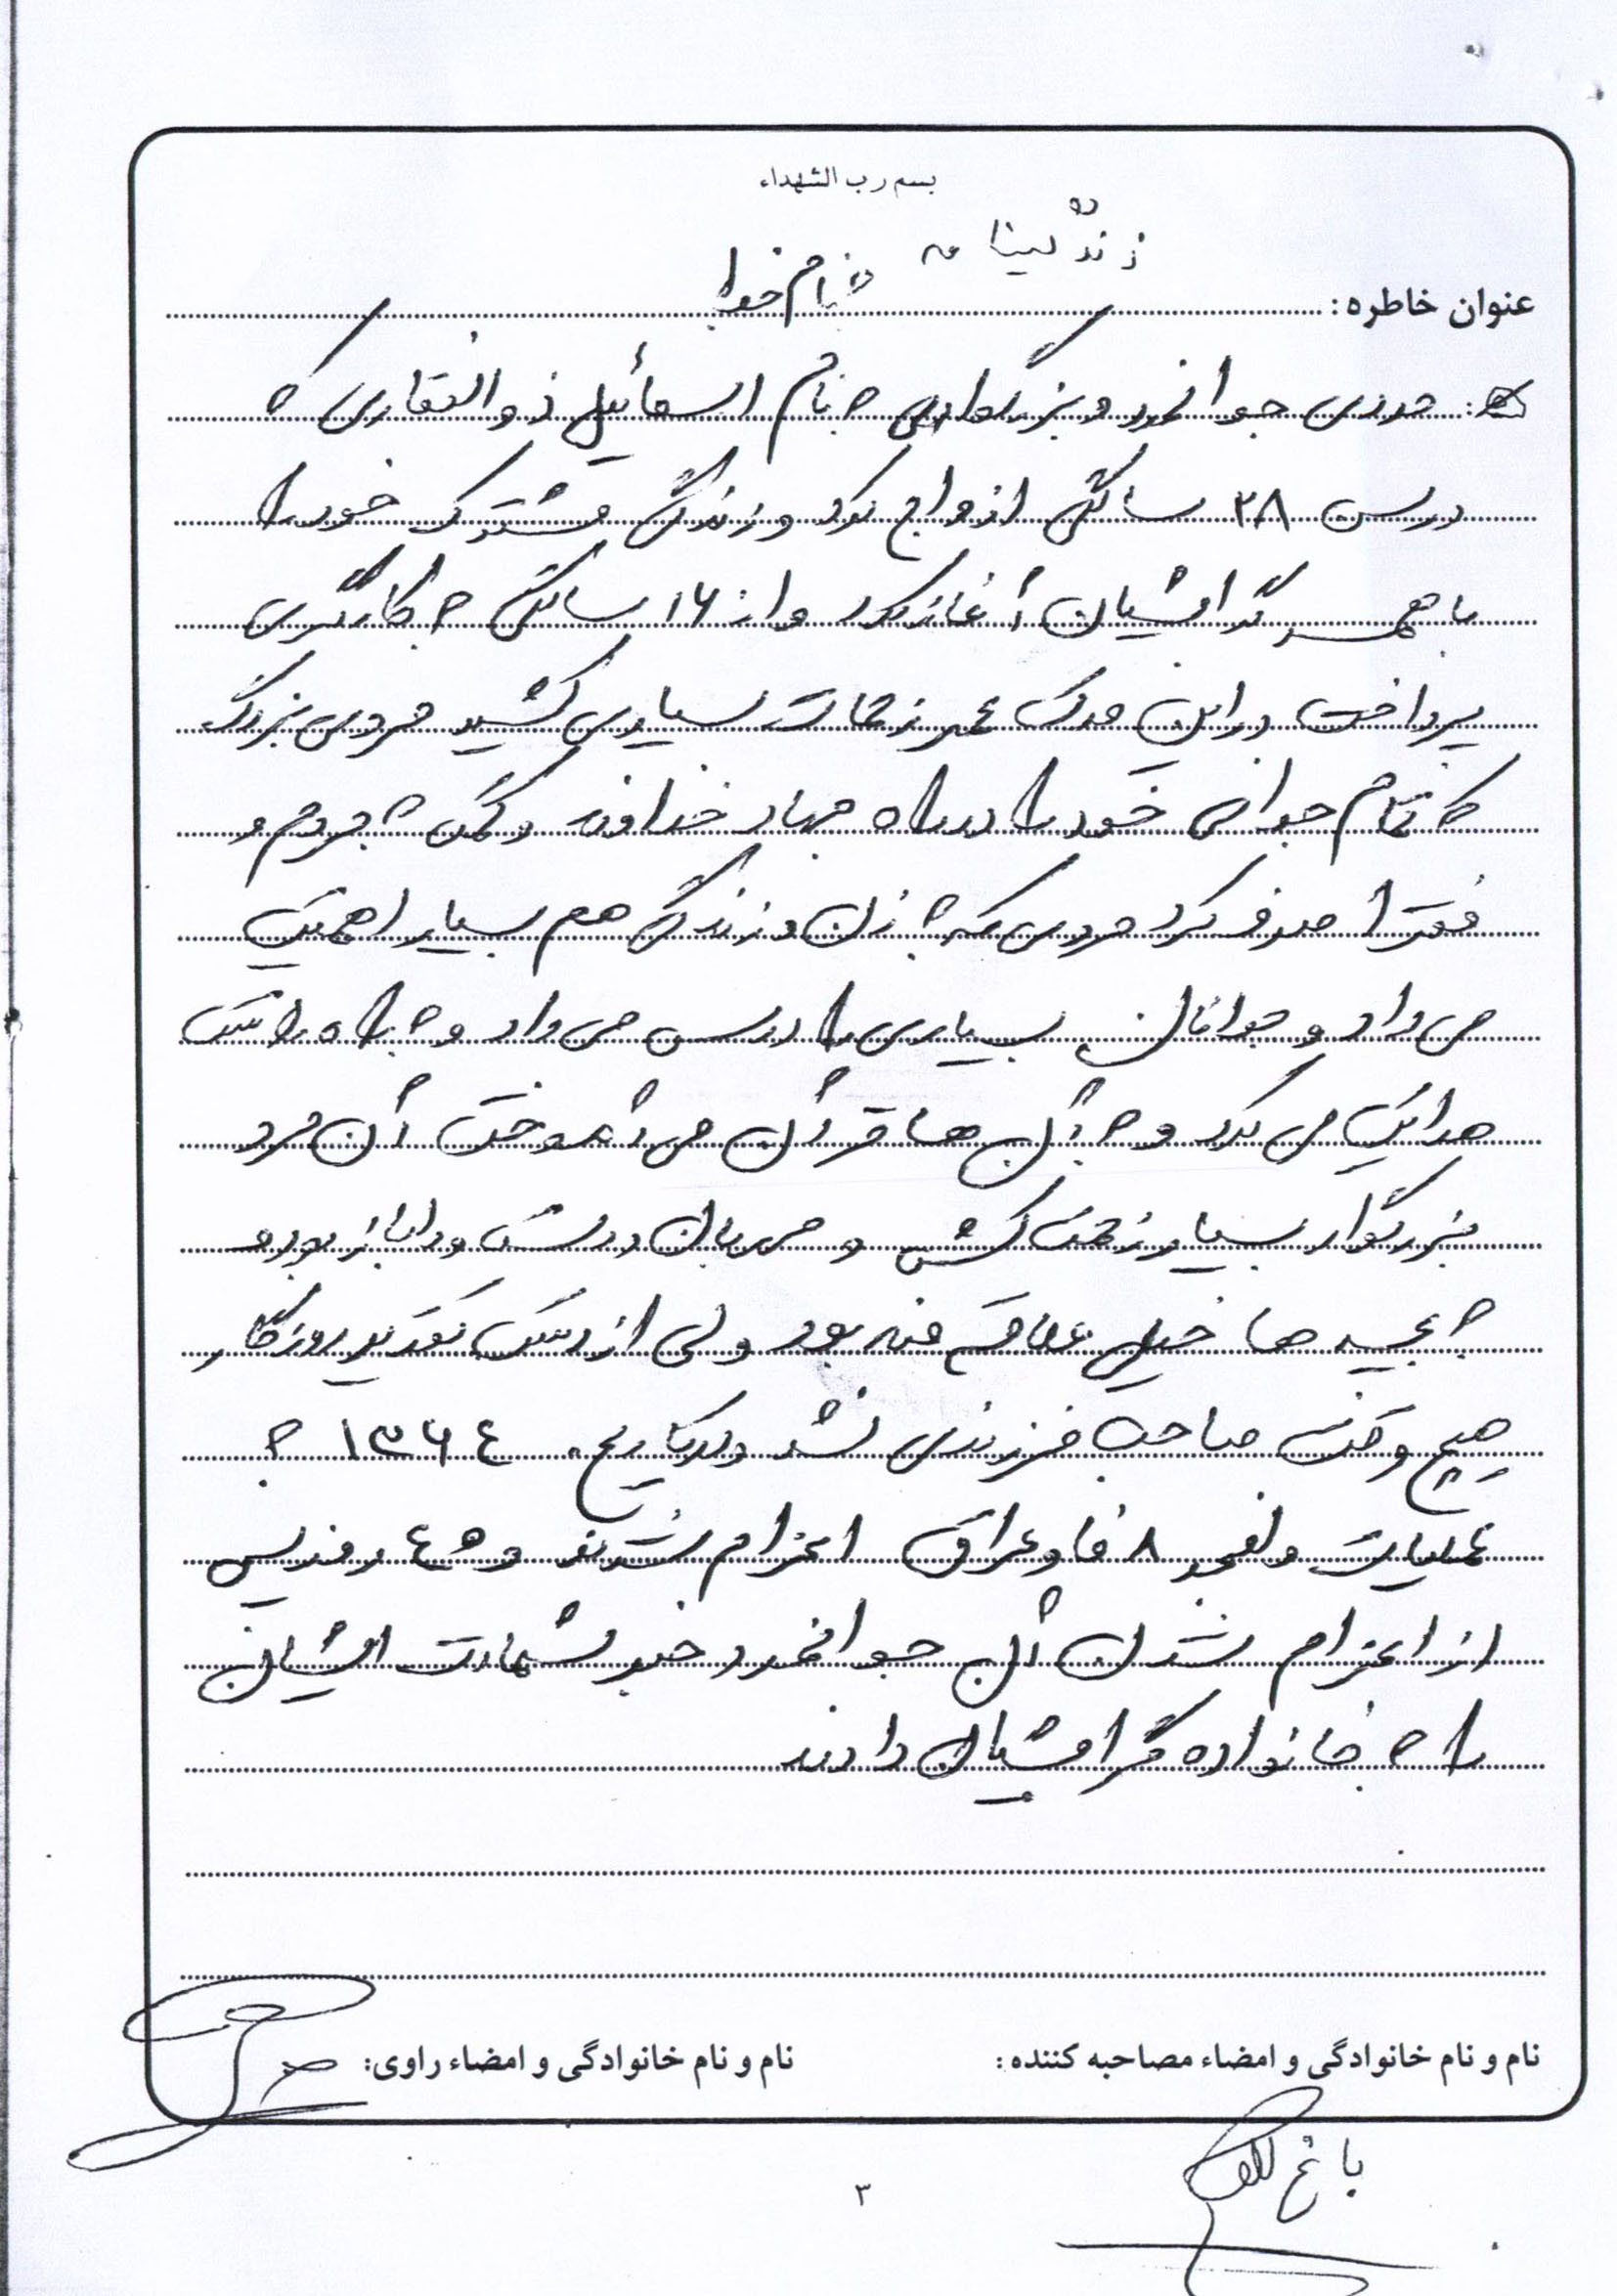 بسم رب الشهداء
زندگینامه
بنام خدا
عنوان خاطره:
مردی جوانمرد و بزرگواری به نام اسمائیل ذوالفقاری که
در سن ۲۸ سالگی ازدواج کرد و زندگی مشترک خود را
با همسر گرامیشان آغاز کرد و از ۱۶ سالگی به کارگری
پرداخت در این مدت عمر زحمات بسیاری کشید مردی بزرگ
که تمام جوانی خود را در راه جهاد خداوند و کمک به مردم و
فقرا صرف کرد مردی که به زن و زندگی هم بسیار اهمیت
می داد و جوانان بسیاری را درس می داد و به راه راست
هدایت می کرد و به آن ها قرآن می آموخت آن مرد
بزرگوار بسیار زحمت کش و مهربان درست و دلباز بود و
به بچه ها خیلی علاقه مند بود ولی از دست تقدیر روزگار
هیچ وقت صاحب فرزندی نشد و در تاریخ ۱۳۶٤ به
عملیات ولفجر ۸ فاو عراق اعزام شدند و ٤٥ روز پس
از اعزام شدن آن جوانمرد خبر شهادت ایشان
را به خانواده گرامیشان دادند
نام و نام خانوادگی و امضاء مصاحبه کننده:
نام و نام خانوادگی و امضاء راوی:
۳